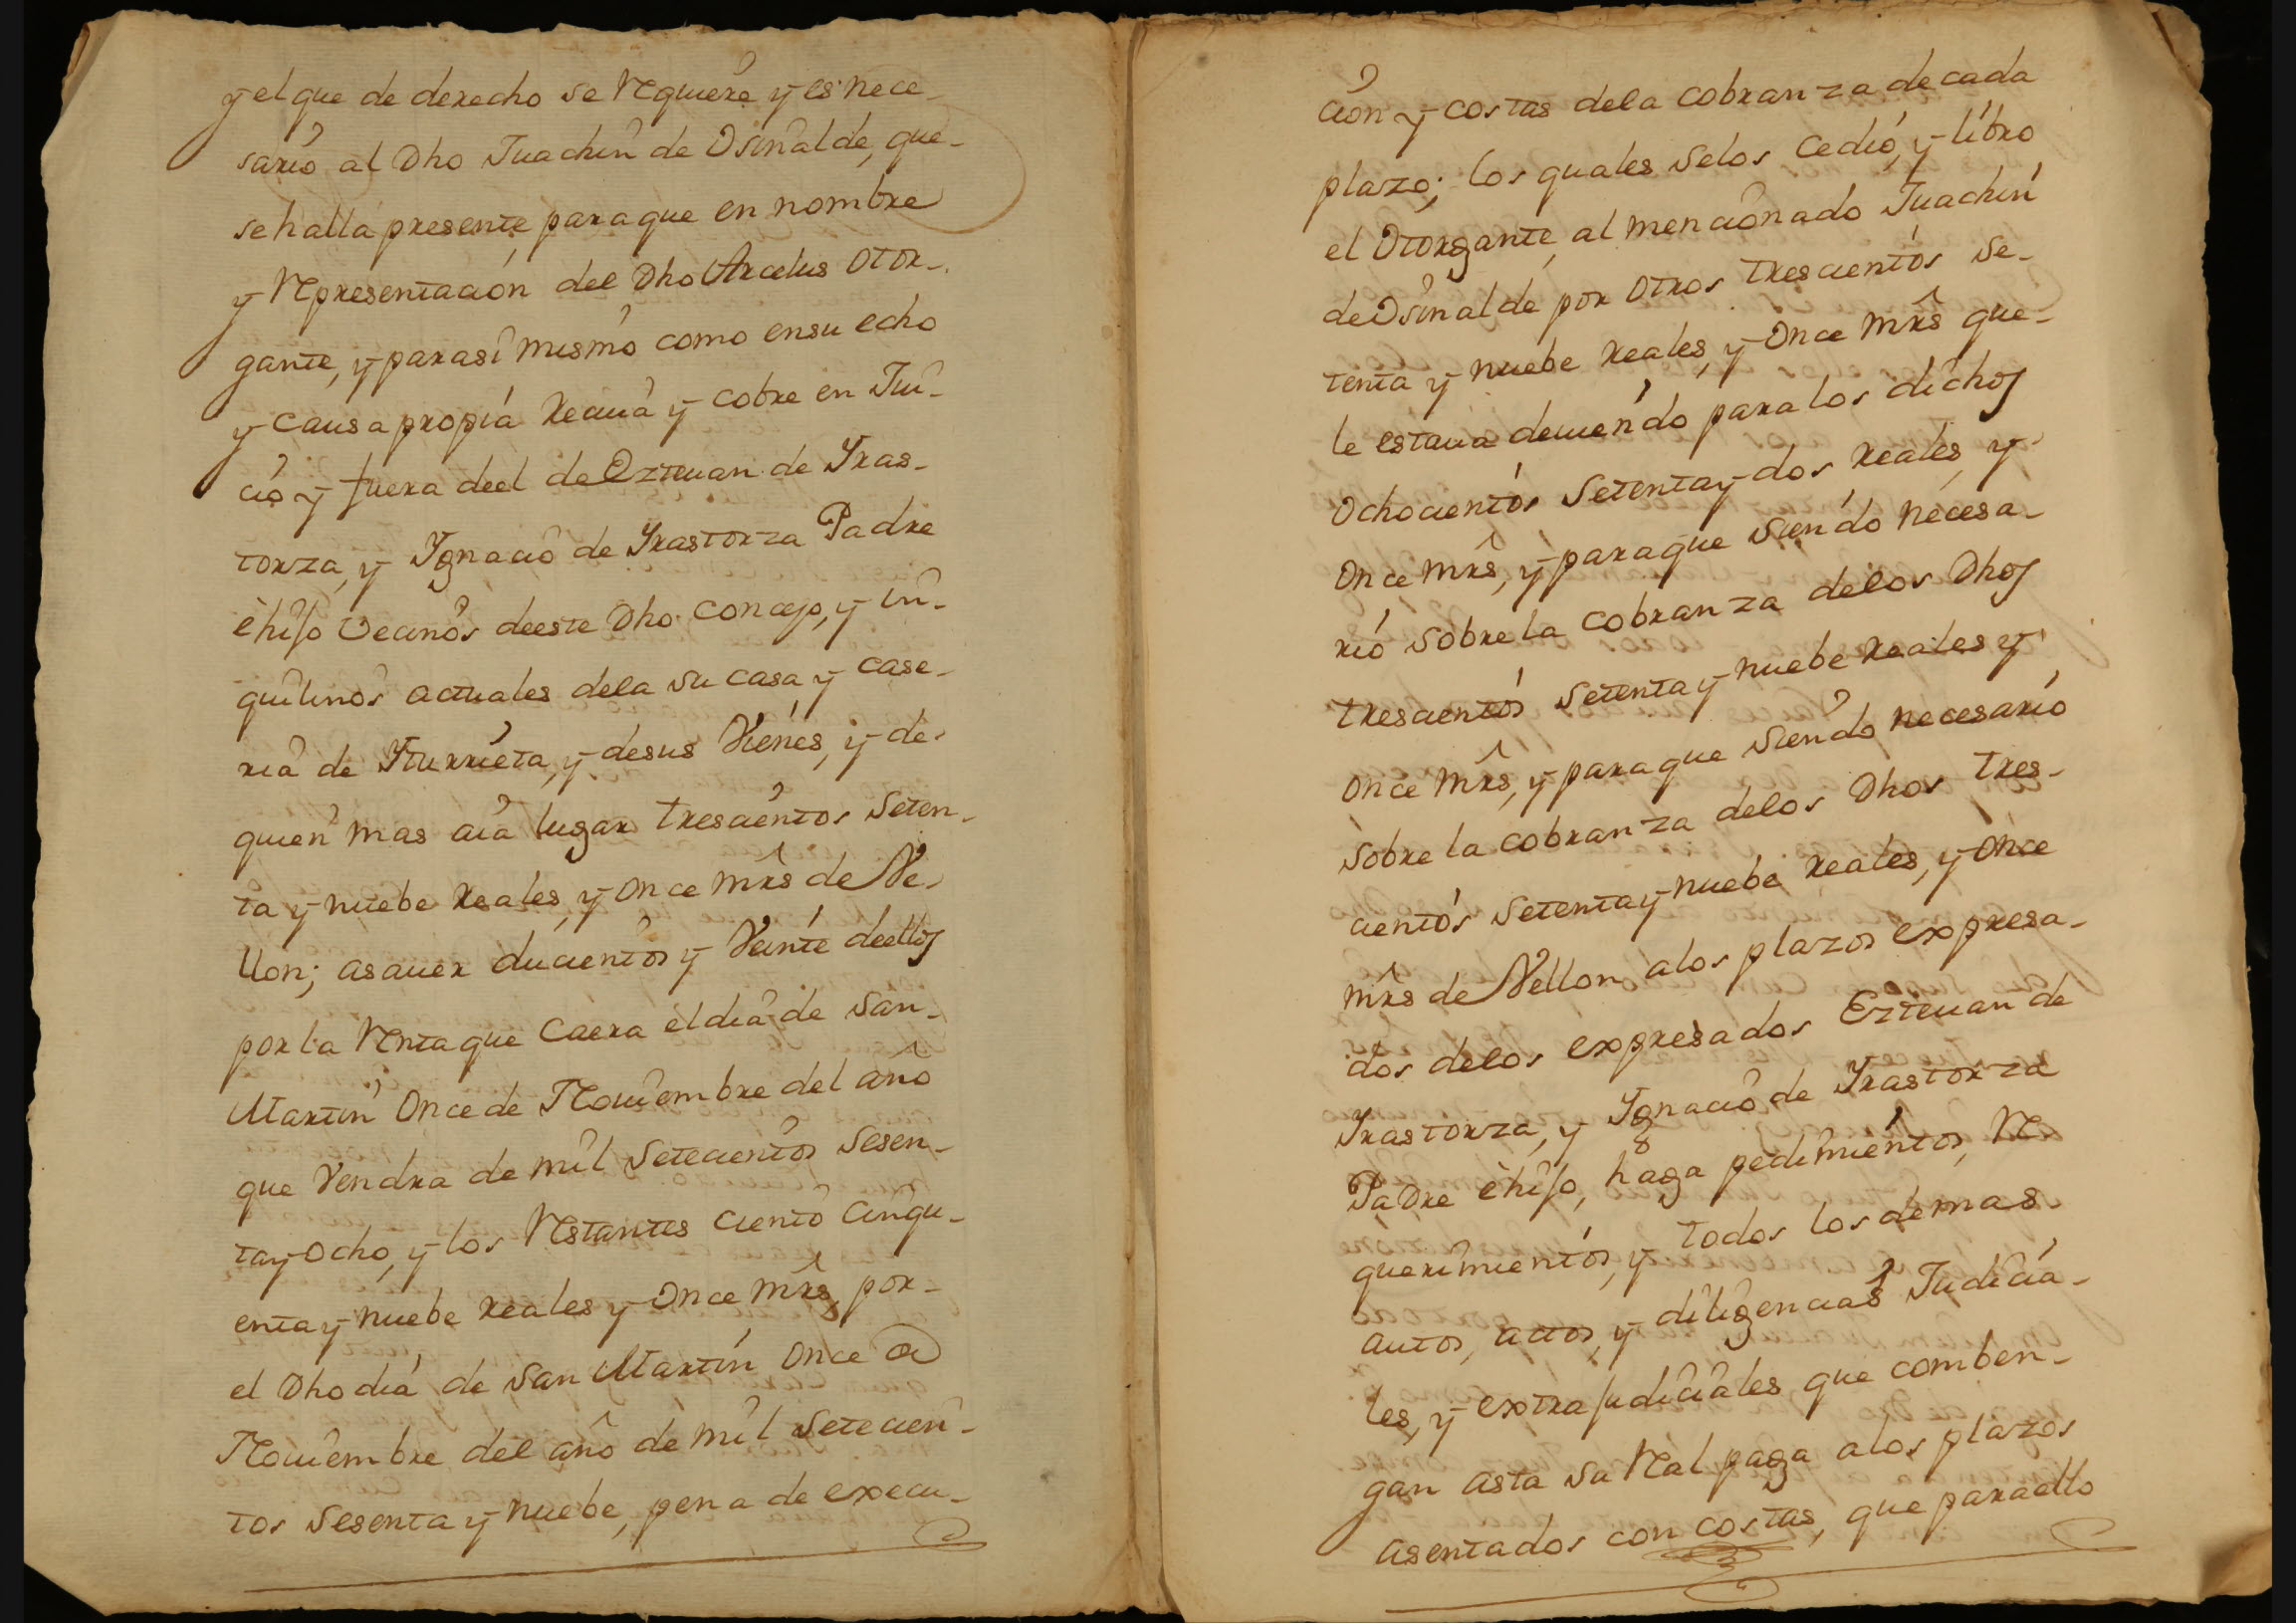 y el que de derecho se Requiere y es nece-
sario al Dho Juachin de Osinalde, que-
se halla presente, para que en nombre
y Representacion del Dho Arcelus Otor-
gante, y para si mismo como en su echo
y causa propia Reciua y cobre en Jui-
cio y fuera de el de Ezteuan de Yras-
torza, y Ygnacio de Yrastorza Padre
è hijo Vecinos de este Dho concejo, y in-
quilinos actuales de la su casa y case-
ria de Yturrieta, y de sus Vienes, y de
quien mas aia lugar trescientos Seten-
ta y nuebe Reales, y Once mrs de Ve-
llon; asauer ducientos y Veinte de ellos
por la Renta que Caera el dia de San-
Martin Once de Nouiembre del año
que Vendra de mil Setecientos Sesen-
ta y Ocho, y los Restantes Ciento Cinqu-
enta y nuebe Reales y Once mrs, por-
el Dho dia de San Martin Once de
Nouiembre del año de mil Setecien-
tos Sesenta y nuebe, pena de execu-
cion y costas de la cobranza de cada
plazo; los quales se los Cedió, y libro
el Otorgante, al mencionado Juachin
de Osinalde por otros trescientos se-
tenta y nuebe Reales, y Once mrs que-
le estaua deuiendo para los dichos
Ochocientos Setenta y dos Reales, y
Once mrs, y para que siendo necesa-
rio sobre la cobranza de los Dhos
trescientos Setenta y nuebe Reales y
Once mrs, y para que siendo necesario
sobre la cobranza de los Dhos tres-
cientos Setenta y nuebe Reales, y Once
mrs de Vellon a los plazos expresa-
dos de los expresados Ezteuan de
Yrastorza, y Ygnacio de Yrastorza
Padre è hijo, haga pedimientos, Re
querimientos, y todos los demas
autos, actos, y diligencias Judicia-
les, y extrajudiciales que comben-
gan asta su Real paga a los plazos
asentados con costas, que para ello